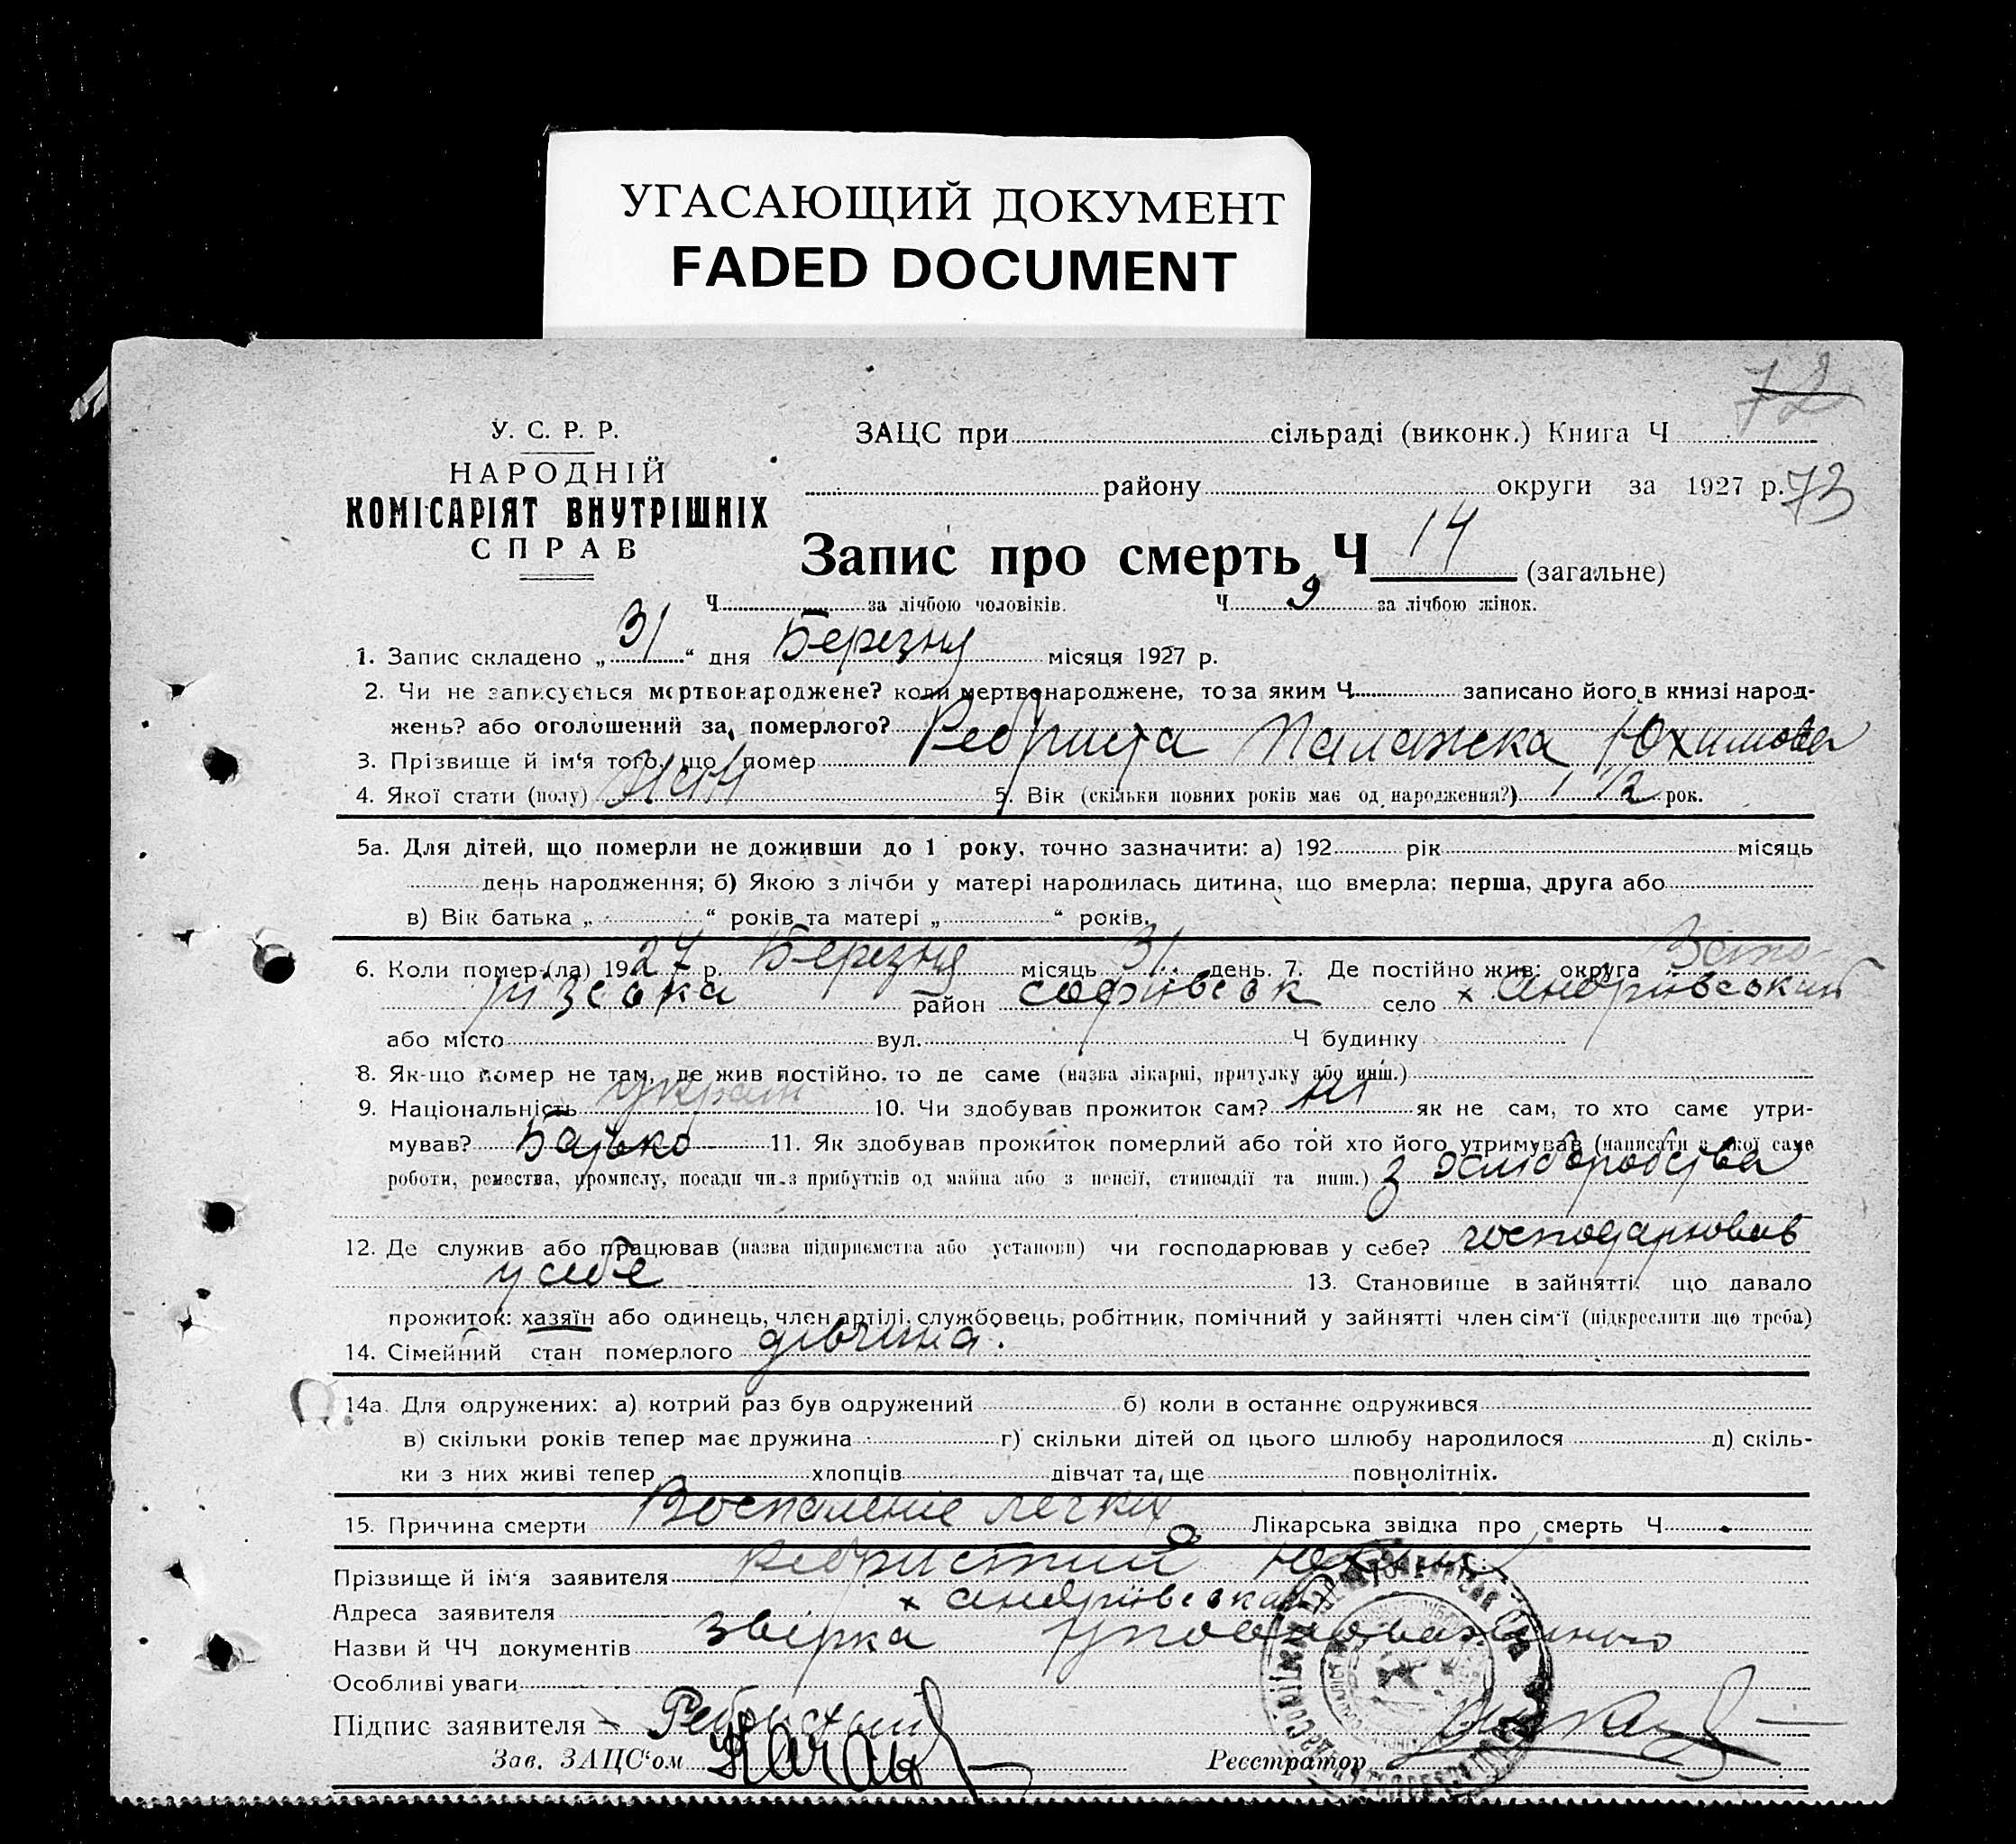 УГАСАЮЩИЙ ДОКУМЕНТ
FADED DOCUMENT
72
У. С. Р. Р.
НАРОДНІЙ
КОМІСАРІЯТ ВНУТРІШНІХ
СПРАВ
ЗАЦС при сільраді (виконк.) Книга Ч
району округи за 1927 р. 73
Запис про смерть Ч 14 (загальне)
Ч за лічбою чоловіків. Ч 9 за лічбою жінок.
1. Запис складено „31“ дня Березня місяця 1927 р.
2. Чи не записується мертвонароджене? коли мертвонароджене, то за яким Ч записано його в книзі народ-
жень? або оголошений за померлого?
3. Прізвище й ім‘я того, що помер Ребриста Палажка Юхимова
4. Якої стати (полу) жін 5. Вік (скільки повних років має од народження?) 1 1/2 рок.
5а. Для дітей, що померли не доживши до 1 року, точно зазначити: а) 192 рік місяць
день народження; б) Якою з лічби у матері народилась дитина, що вмерла: перша, друга або
в) Вік батька „ “ років та матері „ “ років.
6. Коли помер (ла) 1927 р. Березня місяць 31 день. 7. Де постійно жив: округа Запо-
різська район софіівськ село х Андріівський
або місто вул. Ч будинку
8. Як-що помер не там, де жив постійно, то де саме (назва лікарні, притулку або инш.)
9. Національність україн 10. Чи здобував прожиток сам? ні як не сам, то хто саме утри-
мував? Батько 11. Як здобував прожиток померлий або той хто його утримував (написати з якої саме
роботи, ремества, промислу, посади чи з прибутків од майна або з пенсії, стипендії та инш.) з хліборобства
12. Де служив або працював (назва підприємства або установи) чи господарював у себе? господарював
у себе 13. Становище в зайнятті, що давало
прожиток: хазяїн або одинець, член артілі, службовець, робітник, помічний у зайнятті член сім‘ї (підкреслити що треба)
14. Сімейний стан померлого дівчина.
14а. Для одружених: а) котрий раз був одружений б) коли в останнє одружився
в) скільки років тепер має дружина г) скільки дітей од цього шлюбу народилося д) скіль-
ки з них живі тепер хлопців дівчат та ще повнолітніх.
15. Причина смерти Воспаление легких Лікарська звідка про смерть Ч
Прізвище й ім‘я заявителя Ребристий Юхим
Адреса заявителя х Андріівський
Назви й ЧЧ документів Звірка уповноваженного
Особливі уваги
Підпис заявителя Ребристий
Зав. ЗАЦС‘ом Реєстратор